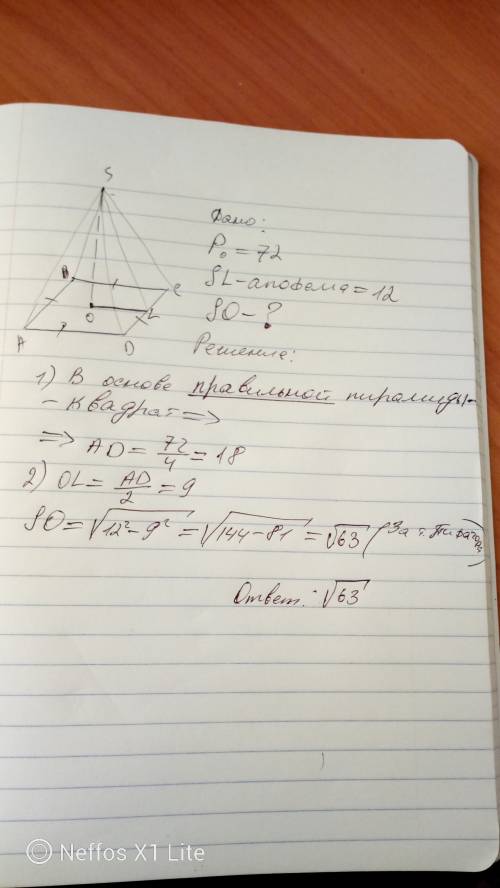 S
B
C
O
L
A
D
Дано:
P₀ = 72
SL - апофема = 12
SO - ?
Решение:
1) В основе правильной пирамиды -
- квадрат =>
=> AD = 72/4 = 18
2) OL = AD/2 = 9
SO = √(12² - 9²) = √(144 - 81) = √63 (За т. Пифагора)
Ответ: √63
Neffos X1 Lite